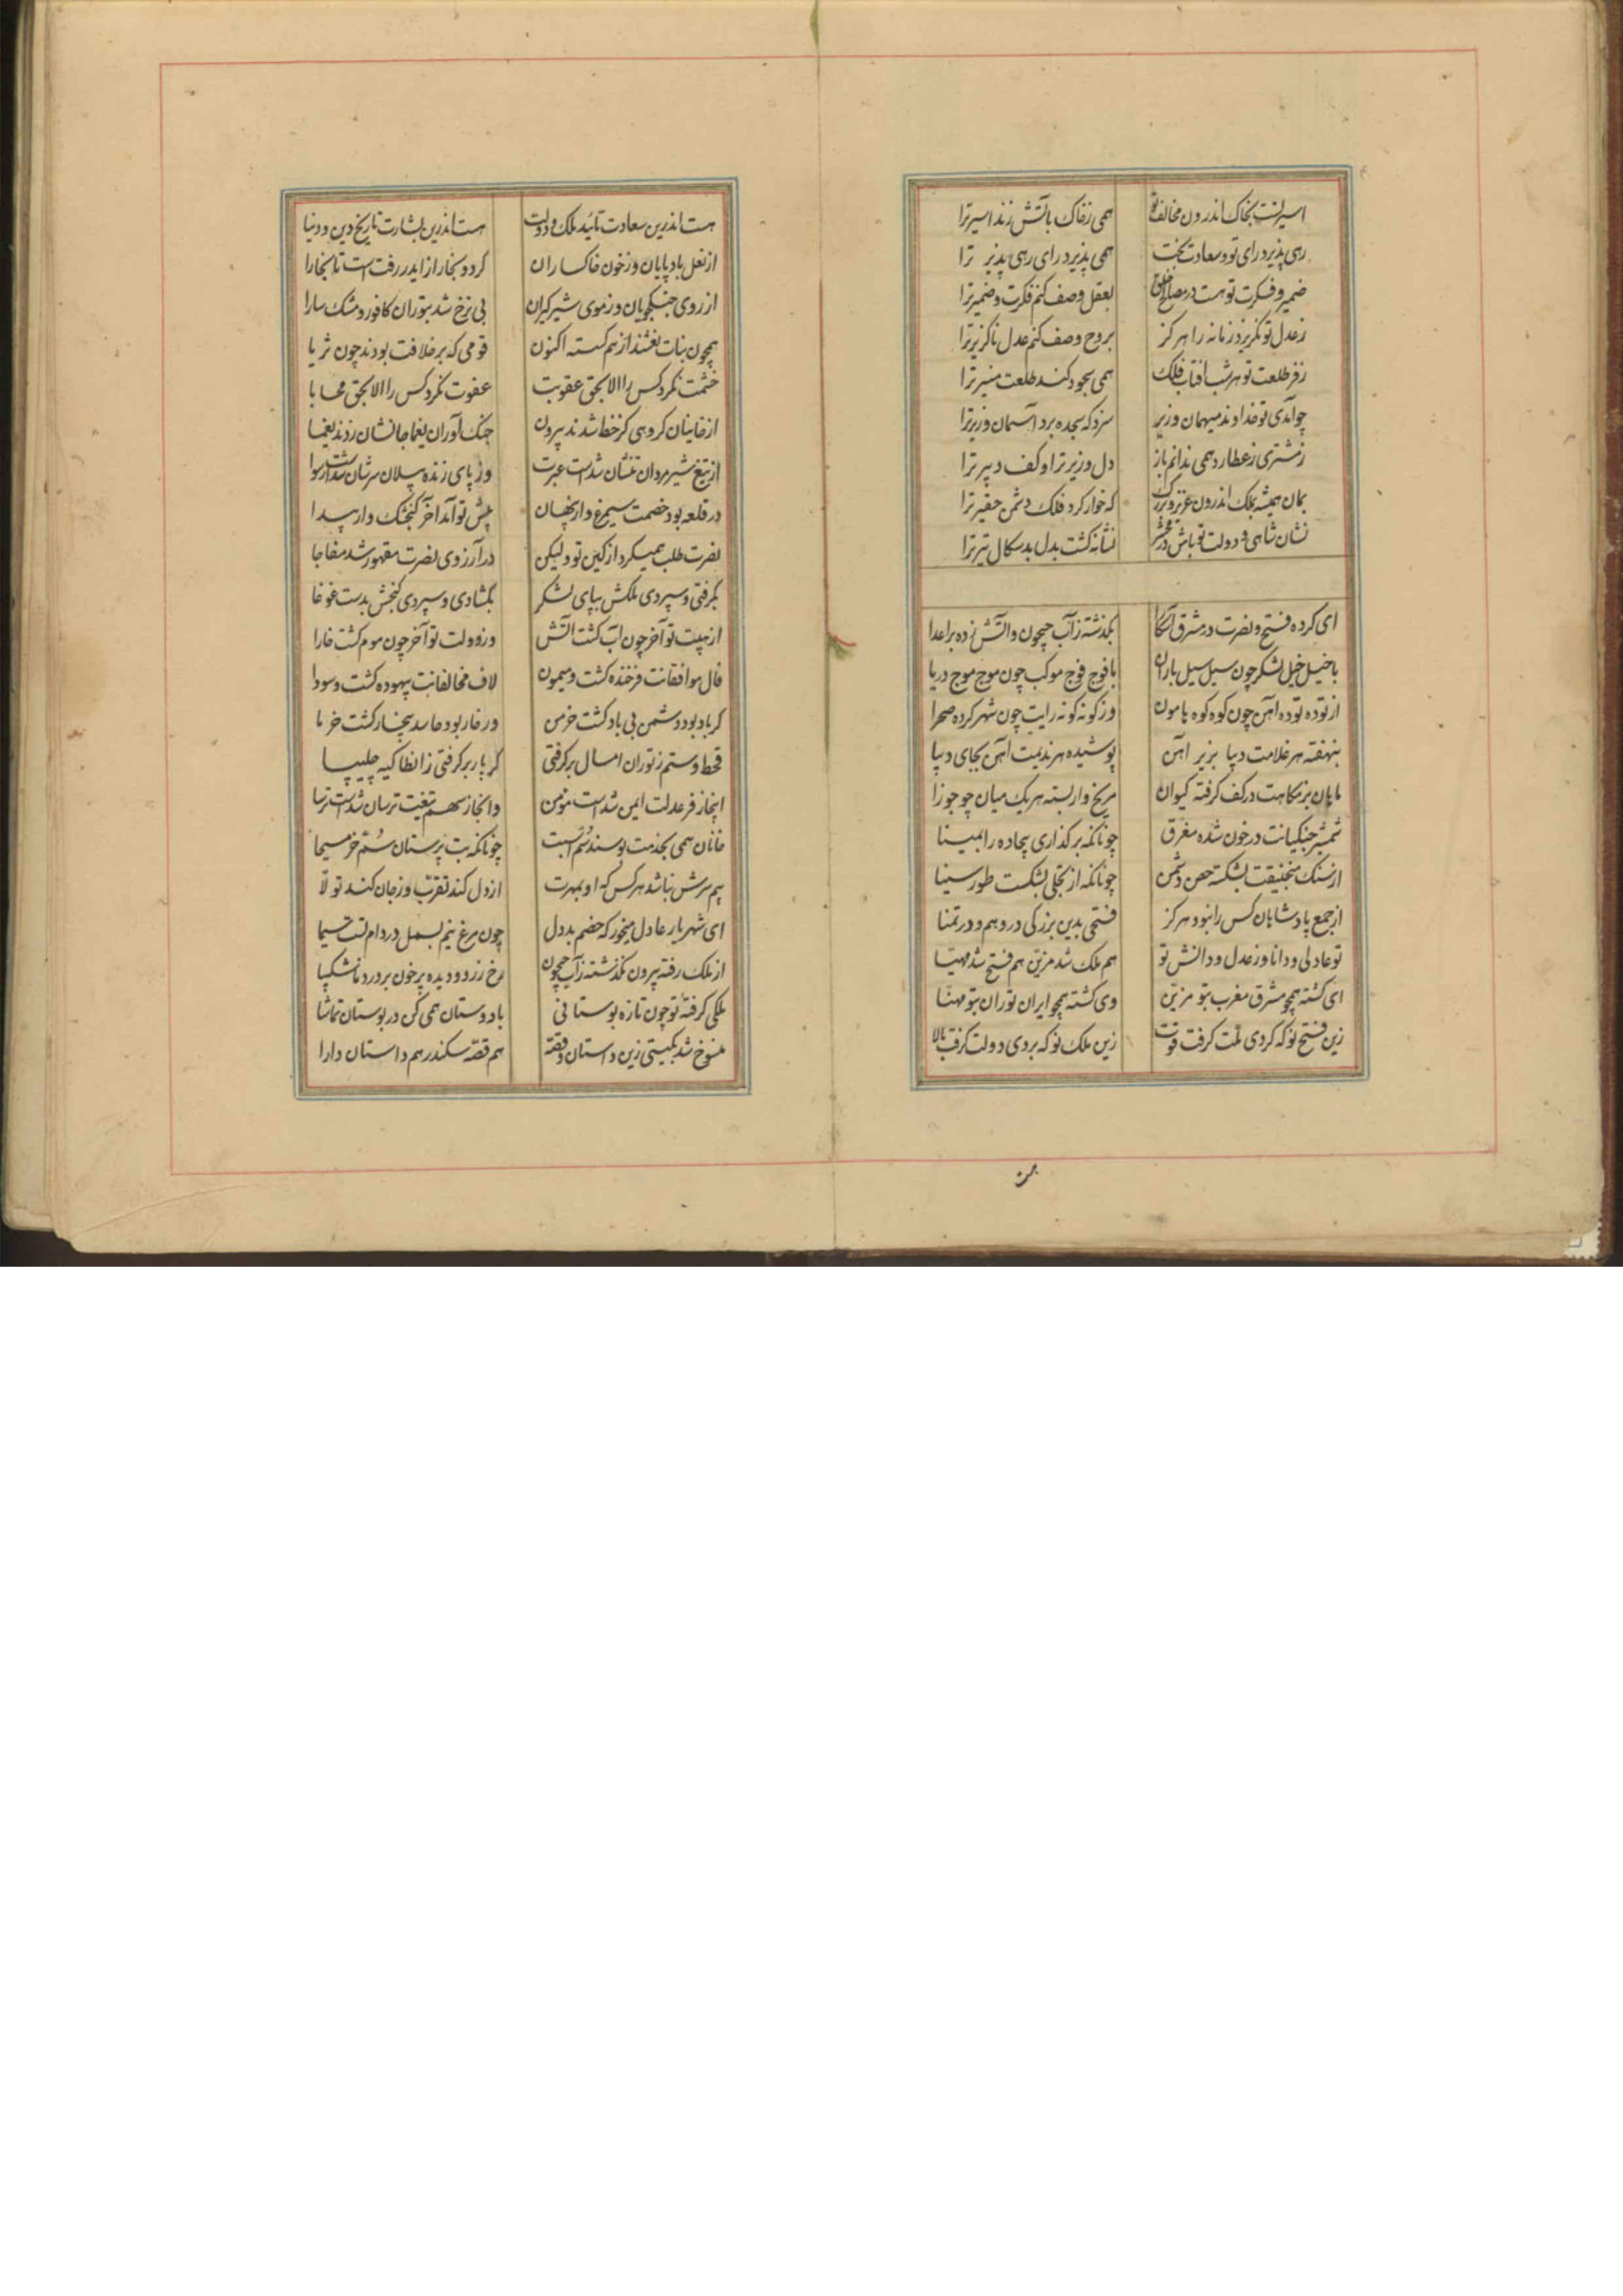 اسیر تست بخاک اندرون مخالف تو همی ز خاک بآتش زند اسیر ترا
رهی پذیرد رای تو و سعادت بخت همی پذیرد رای رهی پذیر ترا
ضمیر و فکرت تو هست در مصالح خلق بعقل وصف کنم فکرت و ضمیر ترا
ز عدل تو نگریزد زمانه را هرگز بروح وصف کنم عدل ناگزیر ترا
ز فر طلعت تو هر شب افتاب فلک همی سجود کند طلعت منیر ترا
چو آمدی تو خداوند میهمان وزیر سزد که سجده برد آسمان وزیر ترا
ز مشتری ز عطارد همی ندانم باز دل وزیر ترا و کف دبیر ترا
بمان همیشه بملک اندرون عزیز و بزرک که خوار کرد فلک دشمن حقیر ترا
نشان شاهی و دولت تو باش در نشانه کشت بدل بدسکال تیر ترا
ای کرده فتح و نصرت در مشرق آشکارا بکذشته ز آب جیحون و آتش زده بر اعدا
با خیل خیل لشکر چون سیل سیل باران با فوج فوج موکب چون موج موج دریا
از توده توده آهن چون کوه کوه هامون وز کونه کونه رایت چون شهر کرده صحرا
بنهفته هر غلامت دیبا بزیر آهن پوشیده هر ندیمت آهن بجای دیبا
ماهان بزمکاهت در کف کرفته کیوان مریخ وار بسته هر یک میان چو جوزا
شمشیر جنکیانت در خون شده مغرق چونانکه برکذاری بیجاده را بمینا
از سنک منجنیقت بشکسته حصن دشمن چونانکه از تجلی بشکست طور سینا
از جمع پادشاهان کس را نبود هرکز فتحی بدین بزرکی در وهم و در تمنا
تو عادلی و دانا وز عدل و دانش تو هم ملک شد مزین هم فتح شد مهیا
ای کشته همچو مشرق مغرب بتو مزین وی کشته همچو ایران توران بتو مهنا
زین فتح نو که کردی ملت کرفت قوت زین ملک نو که بردی دولت کرفت بالا
هست اندرین سعادت تائید ملک و دولت هست اندرین بشارت تاریخ دین و دنیا
از نعل بادپایان وز خون خاکساران کرد و بخار از ایدر رفت است تا بخارا
از روی جنکجویان وز موی شیرکیران بی نرخ شد بتوران کافور و مشک سارا
همچون بنات نعشند از هم کسسته اکنون قومی که بر خلافت بودند چون ثریا
خشمت نکرد کس را الا بحق عقوبت عفوت نکرد کس را الا بحق محابا
از خانیان کروهی کز خط شدند بیرون جنک آوران یغما جانشان زدند یغما
از تیغ شیرمردان تنشان شدست عبرت وز پای زنده پیلان سرشان شدست رسوا
در قلعه بود خصمت سیمرغ وار پنهان پیش تو آمد آخر کنجشک وار پیدا
نصرت طلب همیکرد از کین تو ولیکن در آرزوی نصرت مقهور شد مفاجا
بکرفتی و سپردی ملکش بپای لشکر بکشادی و سپردی کنجش بدست غوغا
از هیبت تو آخر چون آب کشت آتش وز دولت تو آخر چون موم کشت خارا
فال موافقانت فرخنده کشت و میمون لاف مخالفانت بیهوده کشت و سودا
کر باد بود دشمن بی باد کشت خرمن ور خار بود حاسد بیخار کشت خرما
قحط و ستم ز توران امسال برکرفتی کر پار برکرفتی ز انطاکیه چلیپا
اینجا ز فر عدلت ایمن شدست مؤمن وانجا ز سهم تیغت ترسان شدست ترسا
خانان همی بخدمت بوسند سم اسبت چونانکه بت پرستان سم خر مسیحا
بیم سرش نباشد هر کس که او بمهرت از دل کند تقرب وز جان کند تولا
ای شهریار عادل میخور که خصم بددل چون مرغ نیم بسمل در دام تست
از ملک رفته بیرون بکذشته ز آب جیحون رخ زرد و دیده پر خون پر درد و ناشکیبا
ملکی کرفتهٔ تو چون تازه بوستانی با دوستان همی کن در بوستان تماشا
منسوخ شد بکیتی زین داستان و قصه هم قصه سکندر هم داستان دارا